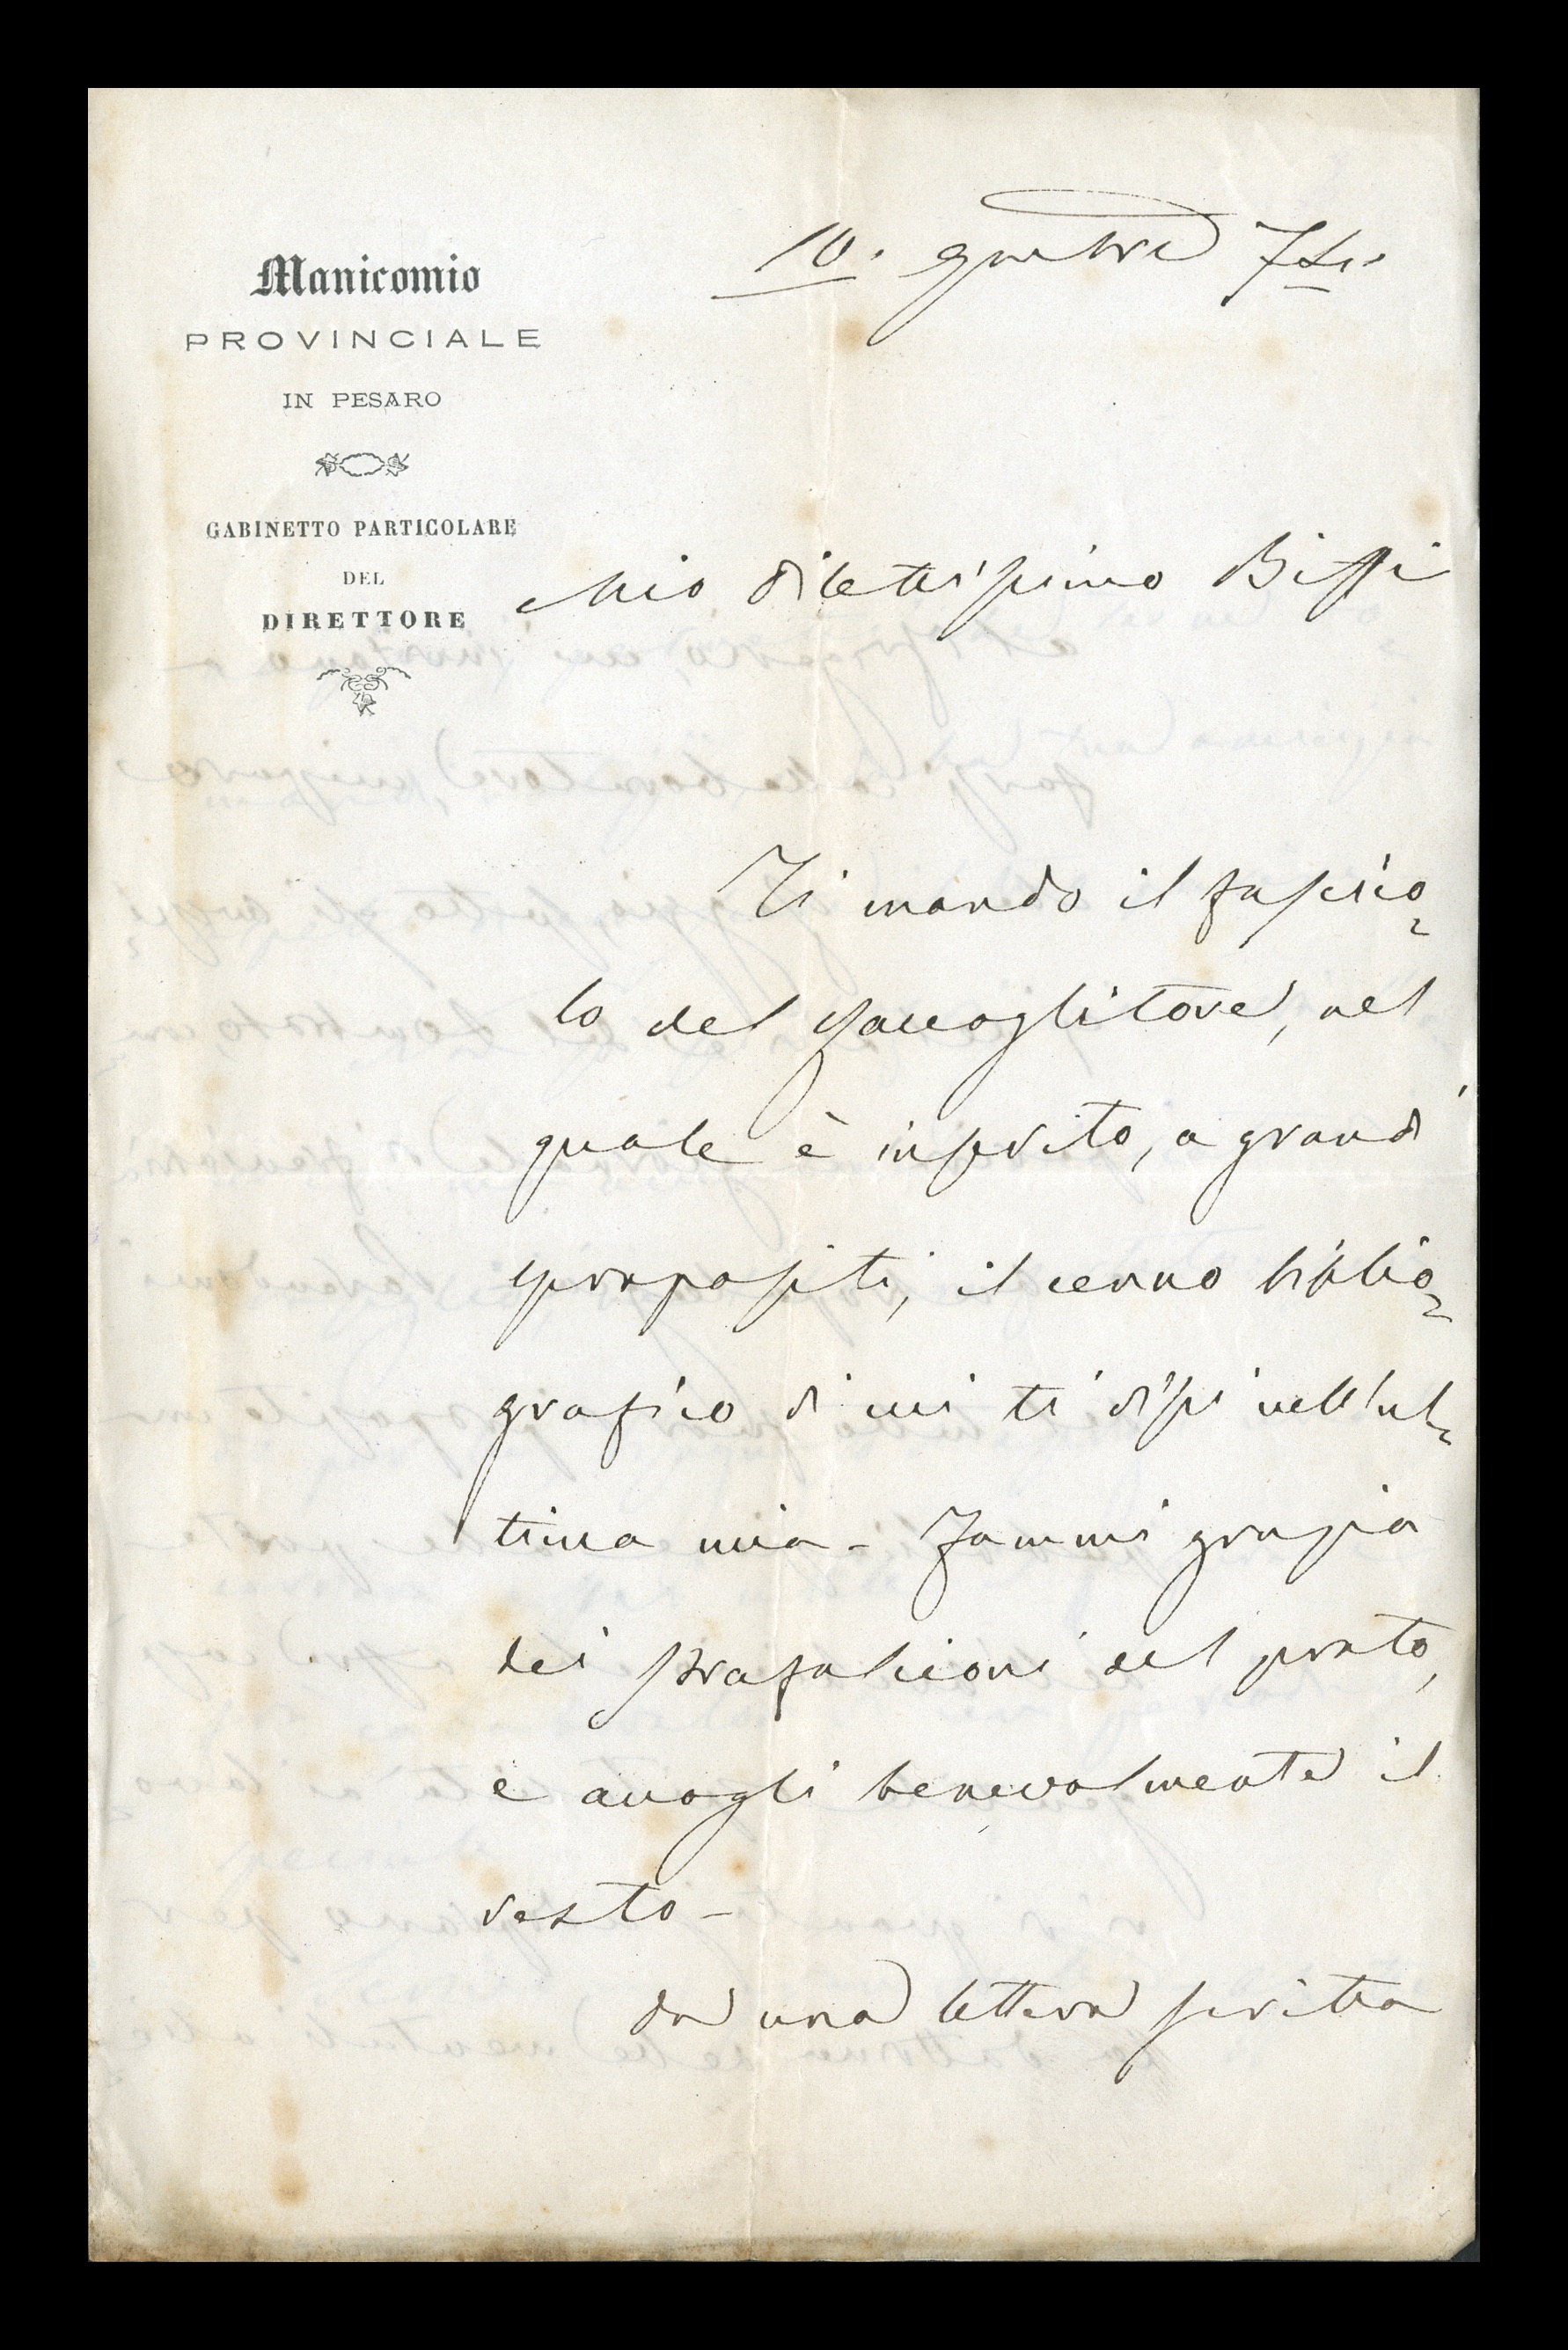 Manicomio
PROVINCIALE
IN PESARO
GABINETTO PARTICOLARE
DEL
DIRETTORE
10. 9mbre 72.
Mio dilettissimo Biffi
Ti mando il fascico-
lo del Raccoglitore, nel
quale è inserito, a grandi
spropositi, il cenno biblio-
grafico di cui ti dissi nell'ul-
tima mia - Fammi grazia
dei strafalcioni del proto,
e accogli benevolmente il
resto -
Da una lettera scritta